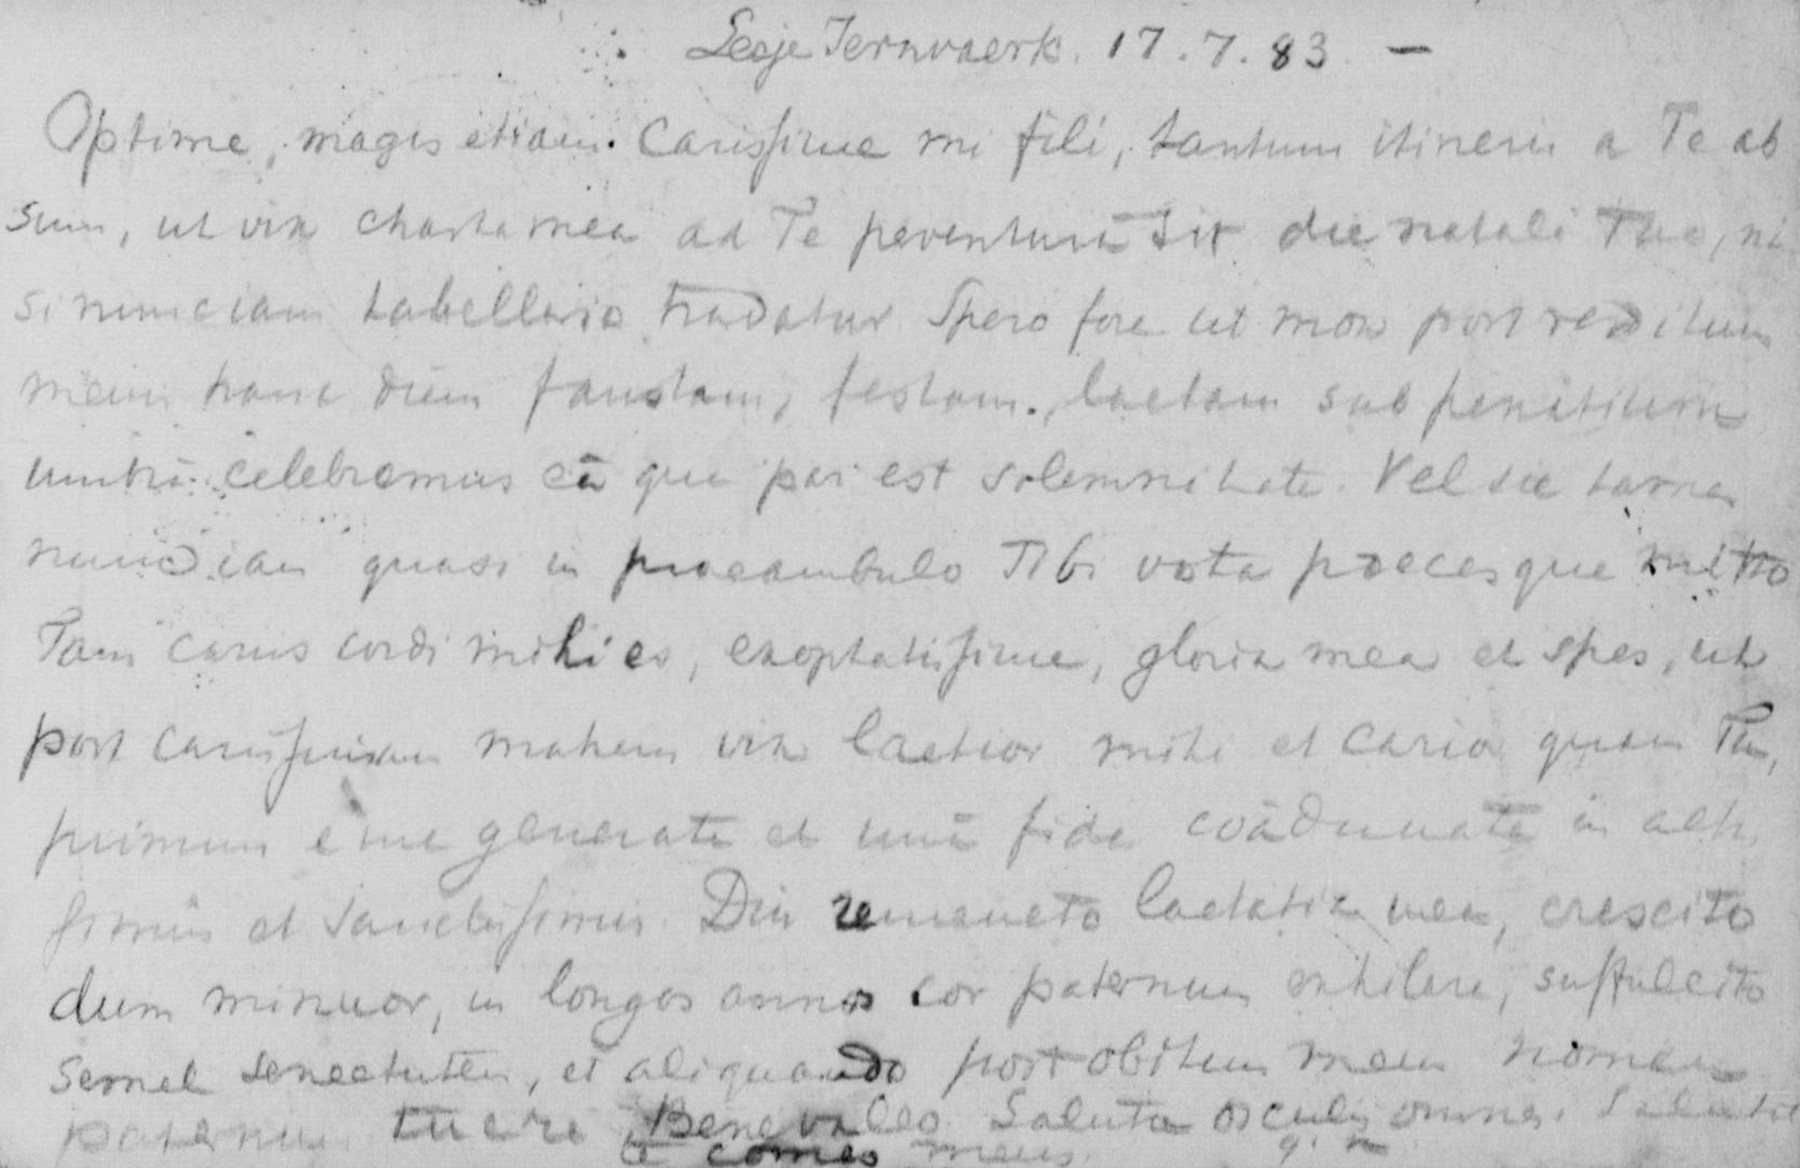 Lesje Jernvaerk. 17.7.83. —
Optime, magis etiam carissime mi fili, tantum itineris a Te ab
sum, ut vix charta mea ad Te perventura sit die natali Tuo, ni
si nunc iam tabellario tradatur. Spero fore ut mox post reditum
meum hanc diem faustam, festam, laetam sub penatium
umbrâ celebremus eâ quae par est solemnitate. Vel sic tamen
nunc iam quasi in praeambulo Tibi vota precesque mitto
Tam carus cordi mihi es, exoptatissime, gloria mea et spes, ut
post carissimam matrem vix laetior mihi et carior quam Tu,
primum e me generate et unâ fide coâdunate in alti
simis et sanctissimis. Diu remaneto laetitia mea, crescito
dum minuor, in longos annos cor paternum exhilara, suffulcito
semel senectutem, et aliquando post obitum meum nomen
paternum tuere Bene valeo. Saluta osculis omnes. Salutat
te comes meus.